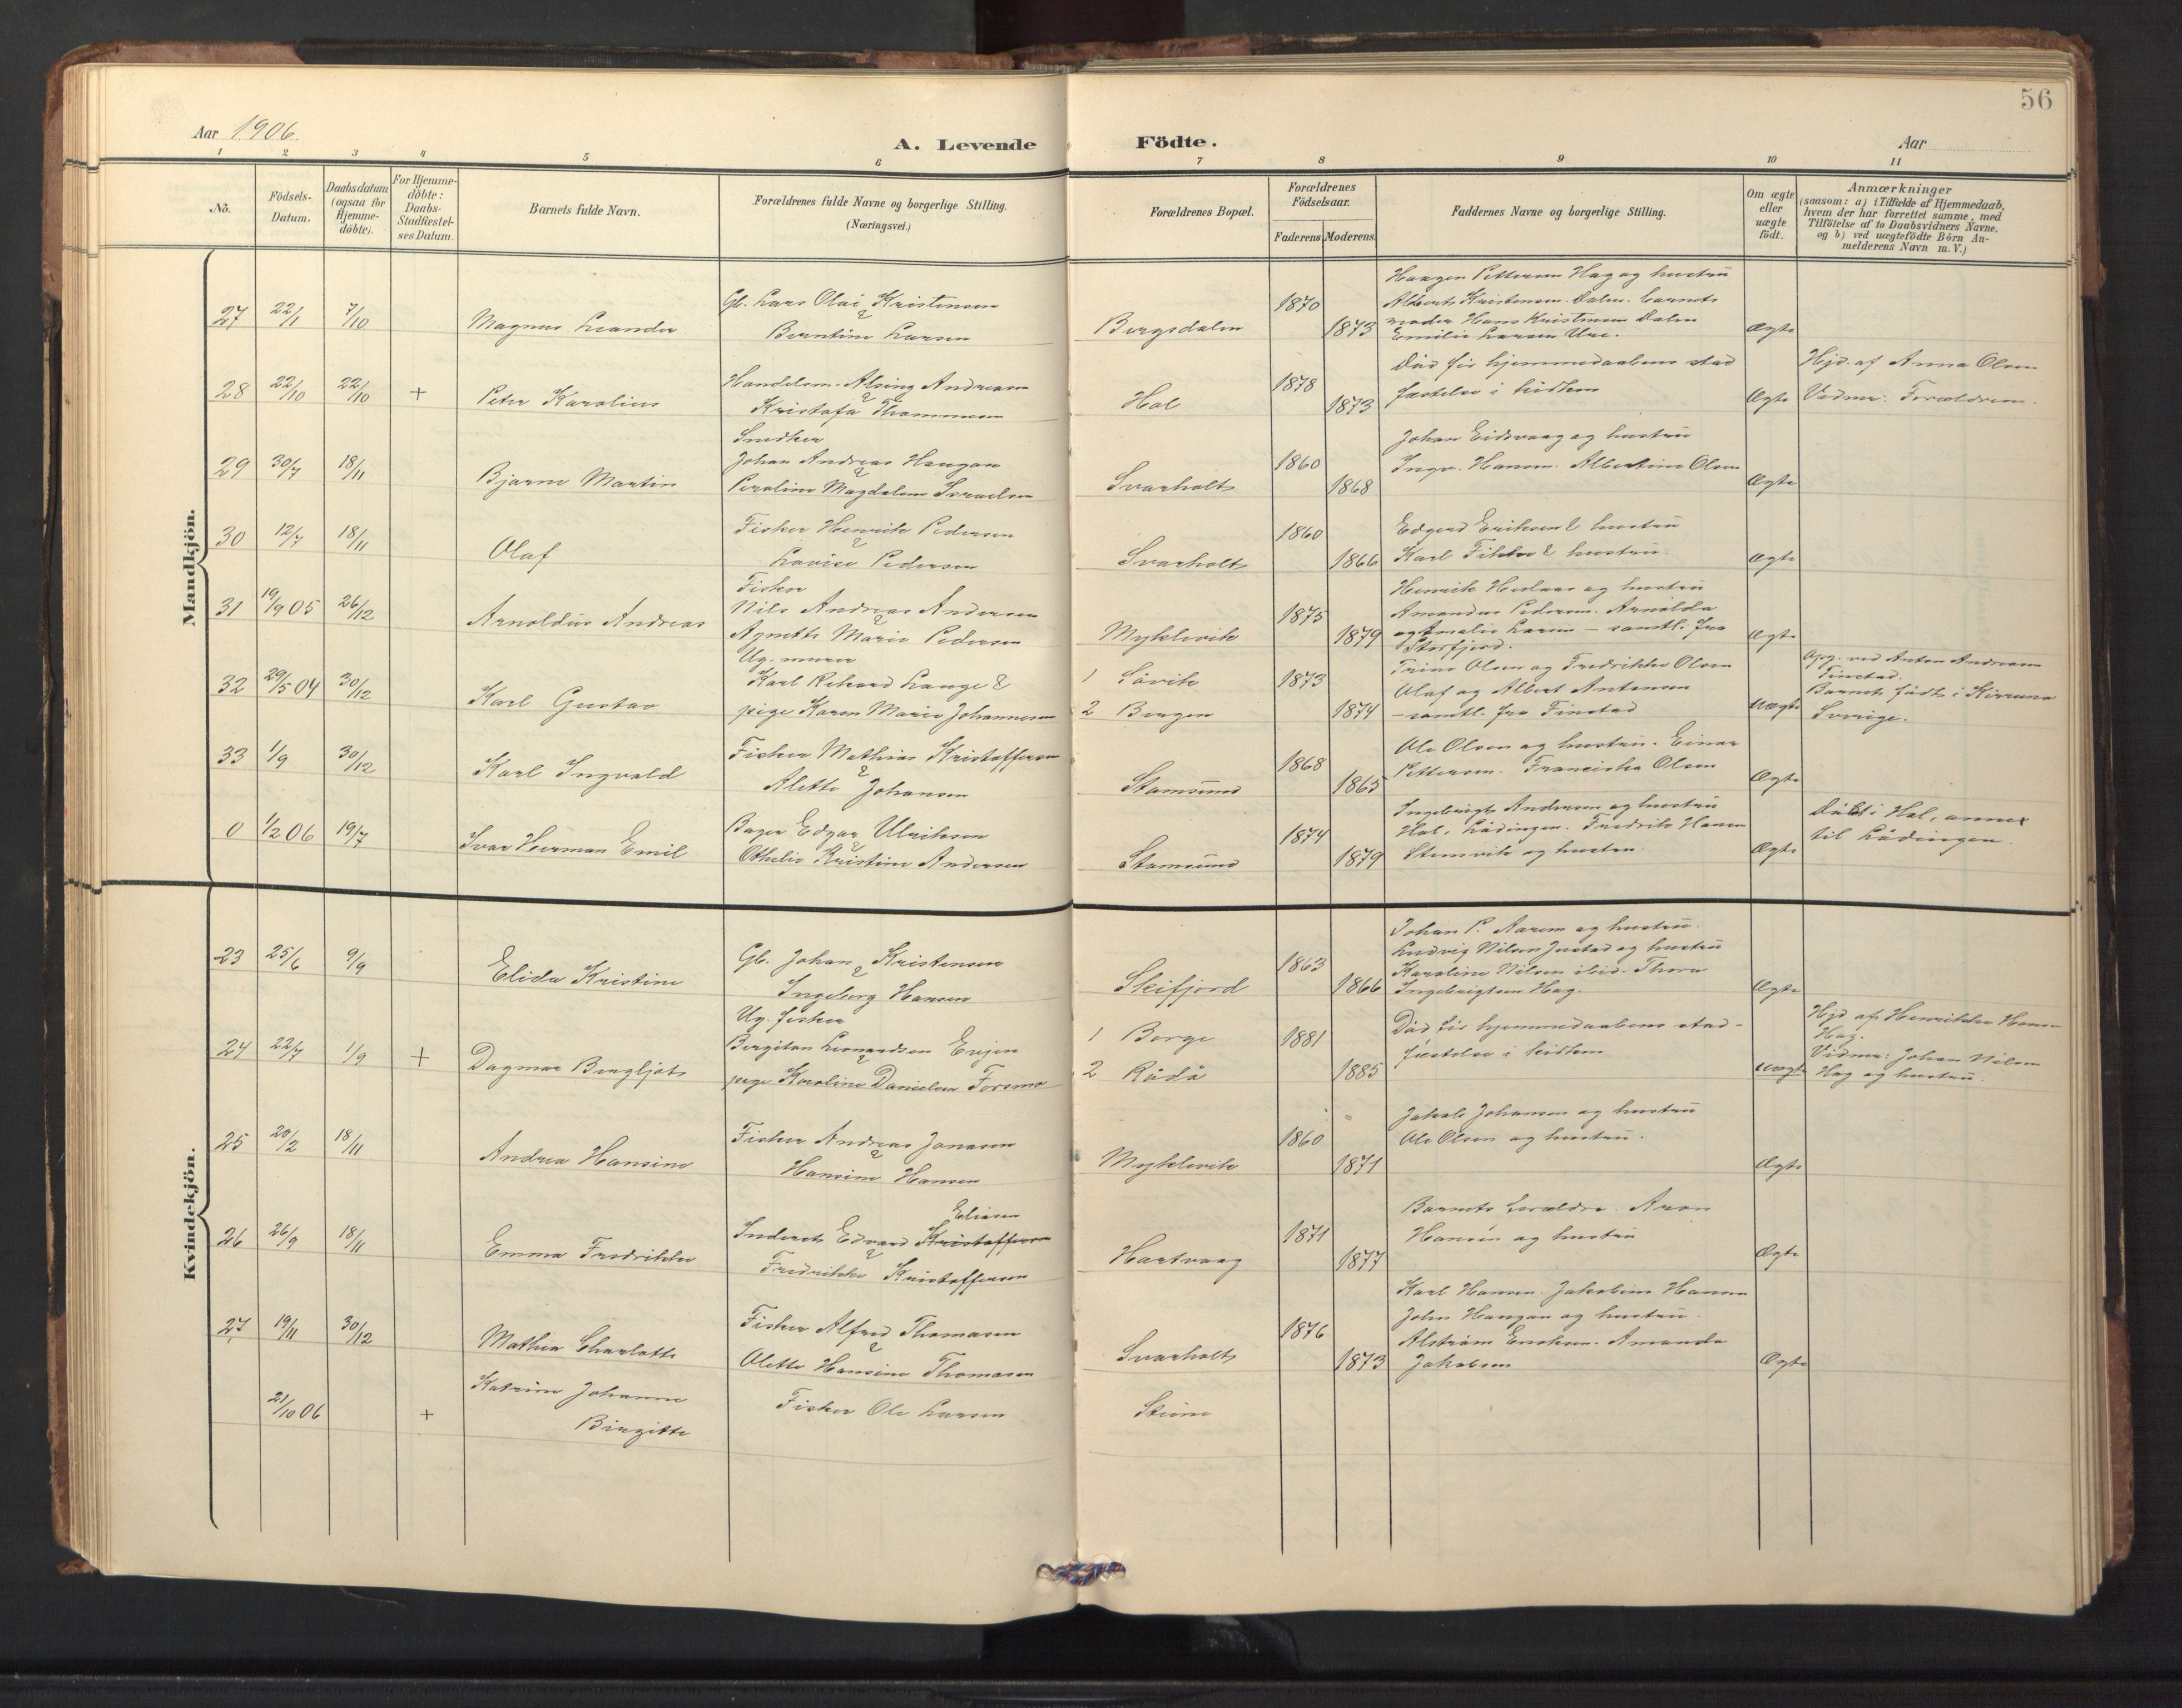 56
Aar 1906.
A. Levende Födte.
Aar
1 2 3 4 5 6 7 8 9 10 11
No.
Födsels-
Datum.
Daabsdatum
(ogsaa för
Hjemme-
döbte).
For Hjemme-
döbte:
Daabs-
Stadfestel-
ses Datum.
Barnets fulde Navn.
Forældrenes fulde Navne og borgerlige Stilling.
(Næringsvei.)
Forældrenes Bopæl.
Forældrenes
Födselsaar.
Faderens
Moderens.
Faddernes Navne og borgerlige Stilling.
Om ægte
eller
uægte
födt.
Anmærkninger
(saasom: a) i Tilfælde af Hjemmedaab,
hvem der har forrettet samme, med
Tilföielse af to Daabsvidners Navne.
og b) ved uægtefödte Börn An-
melderens Navn m. V.)
Mandkjön.
27 22/1 7/10 Magnus Leander
Gb. Lars Olai Kristensen
&
Berntine Larsen
Borgsdalen 1870 1873
Haagen Pettersen Hag og hustru
Alberts Kristensen Dalen. Barnets
moder Hans Kristensen Dalen
Emilie Larsen Ure.
Ægte
28 22/10 22/10 + Peter Karolius
Handelsm. Alsing Andreasen
&
Kristofa Thommesen
Hol 1878 1873
Död för hjemmedaabens stad
fæstelse i kirken
Ægte
Hjd. af Anna Olsen
Vidner: Forældrene.
29 30/7 18/11 Bjarne Martin
Snedker
Johan Andreas Haugan
&
Peroline Magdalene Israelsen
Svarholt 1860 1868
Johan Eidsvaag og hustru
Ingv. Hansen. Albertine Olsen
Ægte
30 12/7 18/11 Olaf
Fisker Henrik Pedersen
&
Lovise Pedersen
Svarholt 1860 1866
Edvard Eriksen & hustru
Karl Fikke & hustru.
Ægte
31 19/9 05 26/12 Arnoldus Andreas
Fisker
Nils Andreas Andersen
&
Agnette Marie Pedersen
Myklevik 1875 1879
Henrik Heslaas og hustru
Amandus Pedersen. Arnolda
og Amalie Larsen – samtl. fra
Storfjord.
Ægte
32 29/5 04 30/12 Karl Gustav
Ug. murer
Karl Rikard Lange &
pige Karen Marie Johannesen
1 Lövik
2 Bergen
1873 1874
Trine Olsen og Fredrikke Olsen
Olaf og Albert Antonsen
– samtl. fra Finstad
Uægte
Opg. ved Anton Andreasen
Finstad.
Barnet född i Kiruna
Sverige.
33 1/9 30/12 Karl Ingvald
Fisker Mathias Kristoffersen
&
Alette Johansen
Stamsund 1868 1865
Ole Olsen og hustru. Einar
Pettersen. Franciska Olsen
Ægte
0 1/2 06 19/7 Ivar Herman Emil
Bager Edgar Ulriksen
&
Othelie Kristine Andersen
Stamsund 1874 1879
Ingebrigt Andersen og hustru
Hol, Lödingen. Fredrik Hansen
Stensvik og hustru.
Ægte
Döbt i Hol, annex
til Lödingen.
Kvindekjön.
23 25/6 9/9 Elida Kristine
Gb. Johan Kristensen
&
Ingeborg Hansen
Skifjord 1863 1866
Johan P. Aaren og hustru.
Ludvig Nilsen Justad og hustru
Karoline Nilsen ibid. Thora
Ingebrigtsen Hag.
Ægte
24 22/7 1/9 + Dagmar Bergljot
Ug. fisker
Bergiton Leonardsen Evjen
&
pige Karoline Danielsen Forsmo
1 Borge
2 Rödö
1881 1885
Död för hjemmedaabens stad-
fæstelse i kirken
Uægte
Hjd af Henrikke Hansen
Hag.
Vidner: Johan Nilsen
Hag og hustru.
25 20/2 18/11 Andrea Hansine
Fisker Andreas Jonasen
&
Hansine Hansen
Myklevik 1860 1871
Jakob Johansen og hustru
Ole Olsen og hustru.
Ægte
26 26/9 18/11 Emma Fredrikke
Eliasen
Inderst Edvard Kristoffersen
&
Fredrikke Kristoffersen
Hartvaag 1871 1877
Barnets forældre. Aron
Hansen og hustru
Ægte
27 19/11 30/12 Mathea Charlotte
Fisker Alfred Thomasen
&
Olette Hansine Thomasen
Svarholt 1876 1873
Karl Hansen. Jakobine Hansen
John Haugan og hustru.
Alström Enoksen. Amanda
Jakobsen
Ægte
21/10 06 + Katrine Johanne
Birgitte
Fisker Ole Larsen
Steine